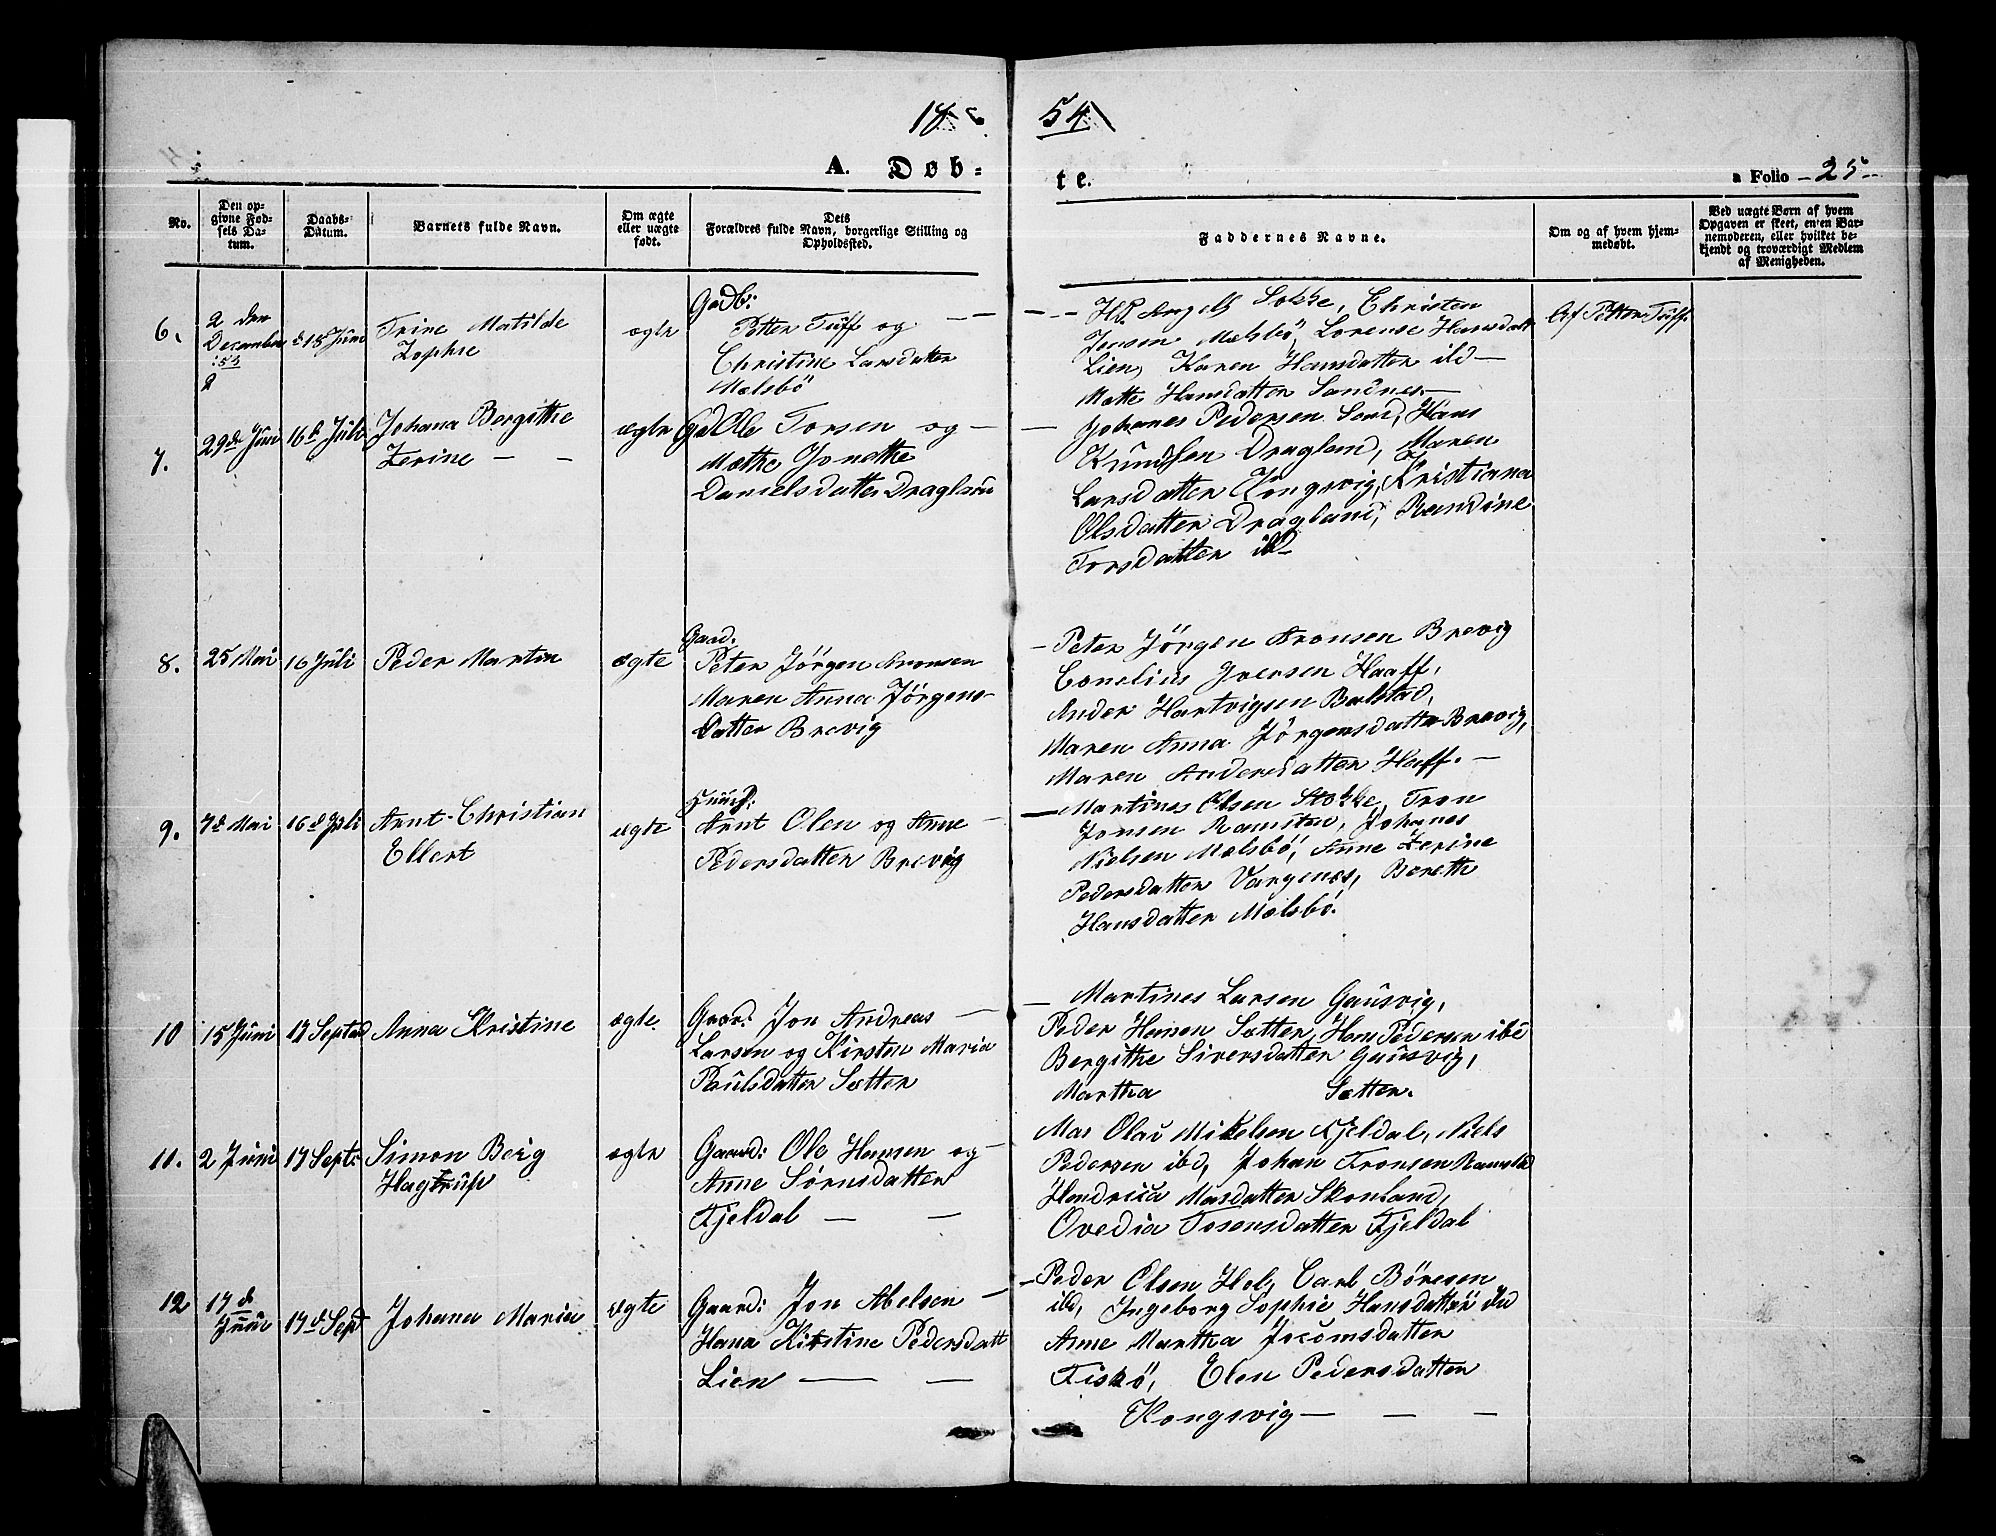 18 54
A. Døb-
te.
a Folio 25
No.
Den op-
givne Fød-
sels Da-
tum.
Daabs-
Datum.
Barnets fulde Navn.
Om ægte
eller uægte
født.
Dets
Forældres fulde Navn, borgerlige Stilling og
Opholdssted.
Faddernes Navne.
Om og af hvem hjem-
medøbt.
Ved uægte Børn af hvem
Opgaven er skeet, enten Bar-
nemoderen, eller hvilket be-
kjendt og troværdigt Medlem
af Menigheden.
6.
2 den
December
53
d 18 Juni
Trine Matilde
Zophie
ægte
Gadb:
Petter Tüff og
Christine Larsdatter
Mælsbö
Angell Sokke, Christen
Jensen Mælsbö, Lorense Hansdatt
Lien, Karen Hansdatter ibd
Mette Hansdatter Sandnes
Af Petter Tüff
7.
29de Juni
16 d Juli
Johana Bergitthe
Zerine
ægte
Gd Ole Torsen og
Mæthe Jonethe
Danielsdatter Dragland
Johanes Pedersen Sand, Hans
Knudsen Dragland, Maren
Larsdatter Kongsvig, Kristiana
Olsdatter Dragland, Randine
Torsdatter ibd
8.
25 Mai
16 Juli
Peder Martin
ægte
Gaard.
Peter Jörgen Aronsen
Maren Anna Jörgens-
datter Brevig
Peter Jörgen Aronsen Brevig
Conelius Iversen Haaff,
Ander Hartvigsen Balstad,
Maren Anna Jörgensdatter Brevig,
Maren Andersdatter Haff.
9.
7d Mai
16d Juli
Arnt Christian
Ellert
ægte
Huusf:
Arnt Olen og Anne
Pedersdatter Brevig
Martines Olsen Stokke, Tron
Jonsen Ramstad, Johanes
Nielsen Mælsbö, Anne Zerine
Pedersdatter Vargenes, Bereth
Hansdatter Mælsbö.
10
15 Juni
17 Septed
Anna Kristine
ægte.
Gaard: Jon Andreas
Larsen og Kirsten Maria
Paulsdatter Sætter
Martines Larsen Gausvig,
Peder Hansen Sætter, Hans Pedersen ibd
Bergithe Siversdatter Gausvig,
Martha Sætter.
11.
2 Juni
17 Sept:
Simon Berg
Hagtrup
ægte
Gaard: Ole Hansen og
Anne Sörnsdatter
Kjeldal
Mas Olai Mikelsen Kjeldal, Niels
Pedersen ibd, Johan Tronsen Ramstad
Hendrica Masdatter Skonland,
Ovedia Tosensdatter Kjeldal
12
17 d
Juni
17 d Sept
Johana Maria
ægte
Gaard: Jon Abelsen
Hana Kirstine Pedersdatt
Lien
Peder Olsen Hol, Carl Böresen
ibd, Ingeborg Sophie Hansdatter ibd
Anne Martha Jocomsdatter
Fiskö, Elen Pedersdatter
Kongsvig